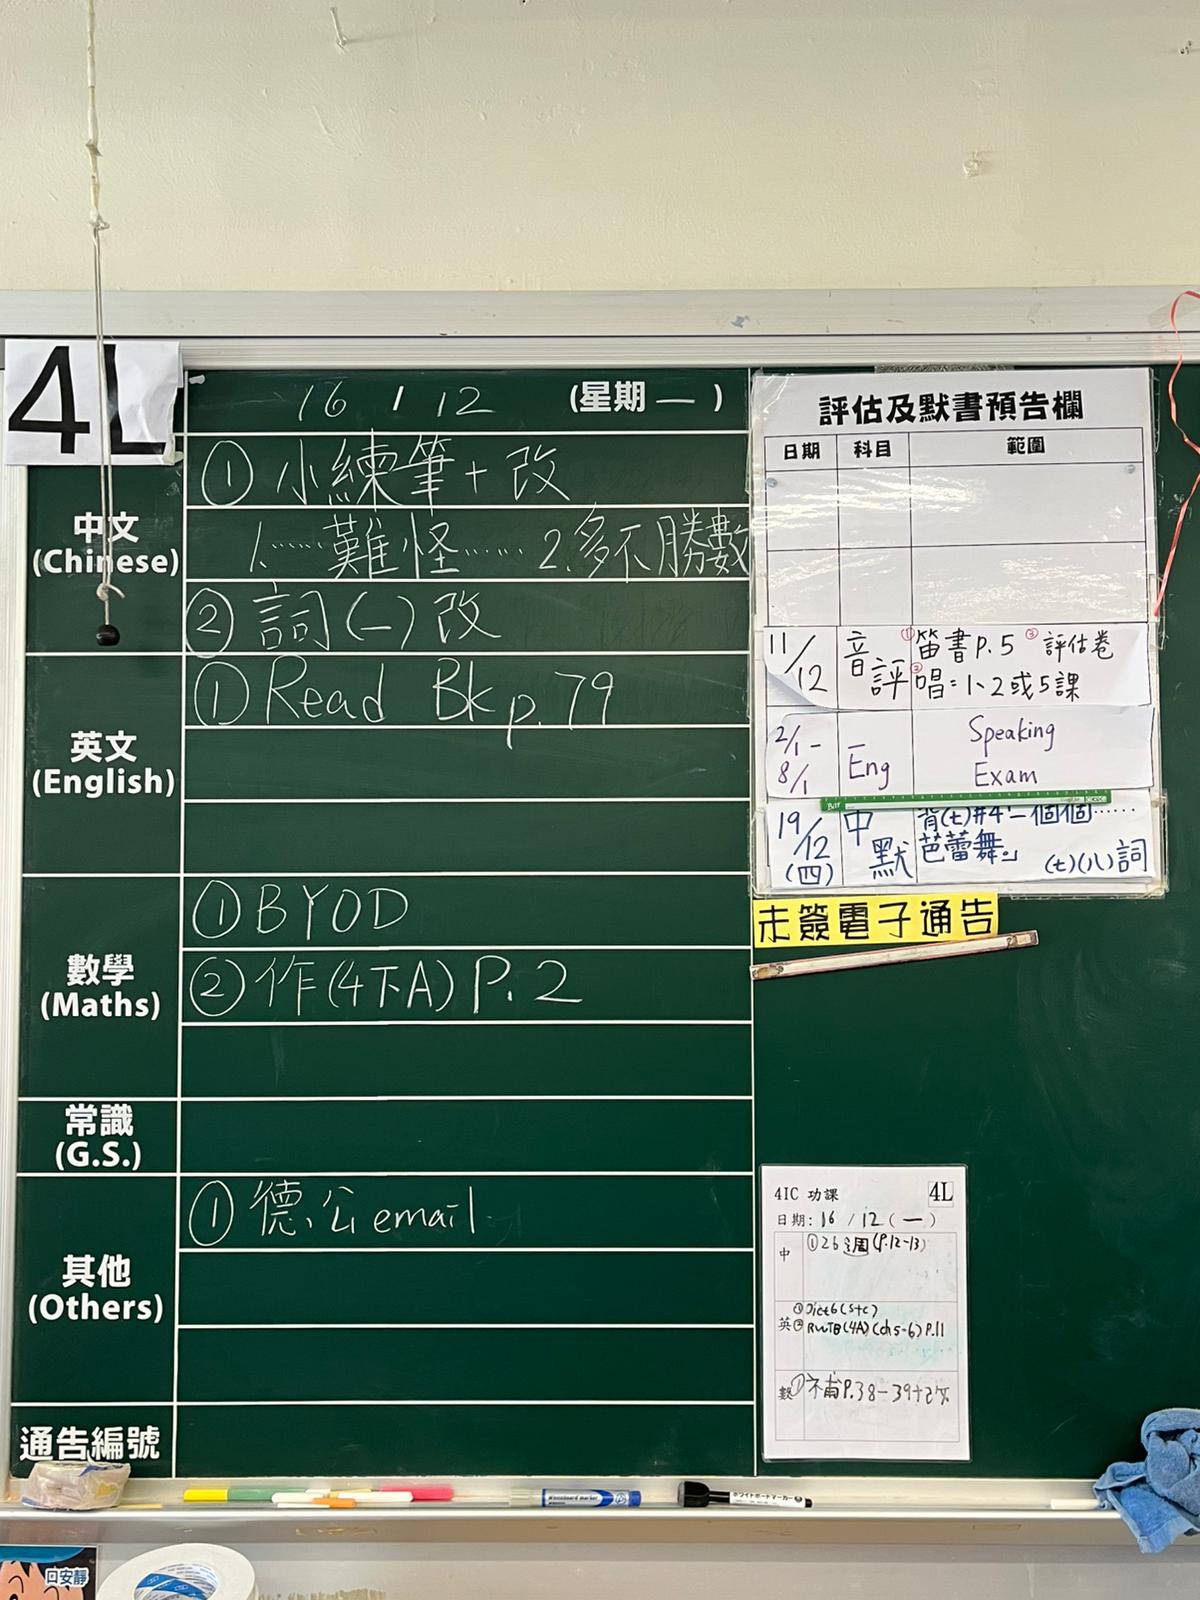 4L
16 / 12 (星期一)
中文
(Chinese)
① 小練筆+改
1.……難怪…… 2.多不勝數
② 詞(一)改
英文
(English)
① Read Bk p.79
數學
(Maths)
① BYOD
② 作(4下A) P.2
常識
(G.S.)
其他
(Others)
① 德、公 email
通告編號
評估及默書預告欄
日期 科目 範圍
11/12 音評 ①笛書P.5 ③評估卷
②唱:1、2或5課
2/1-8/1 Eng Speaking
Exam
19/12 (四) 中默 背(七)#4「一個個……
芭蕾舞。」 (七)(八)詞
未簽電子通告
4IC 功課 4L
日期: 16 / 12 (一)
中 ①26週(P.12-13)
英 ①Dict6(S+C)
②RWTB(4A)(ch5-6) P.11
數 ①補P.38-39+改
Whiteboard Marker
ホワイトボードマーカー
口安靜